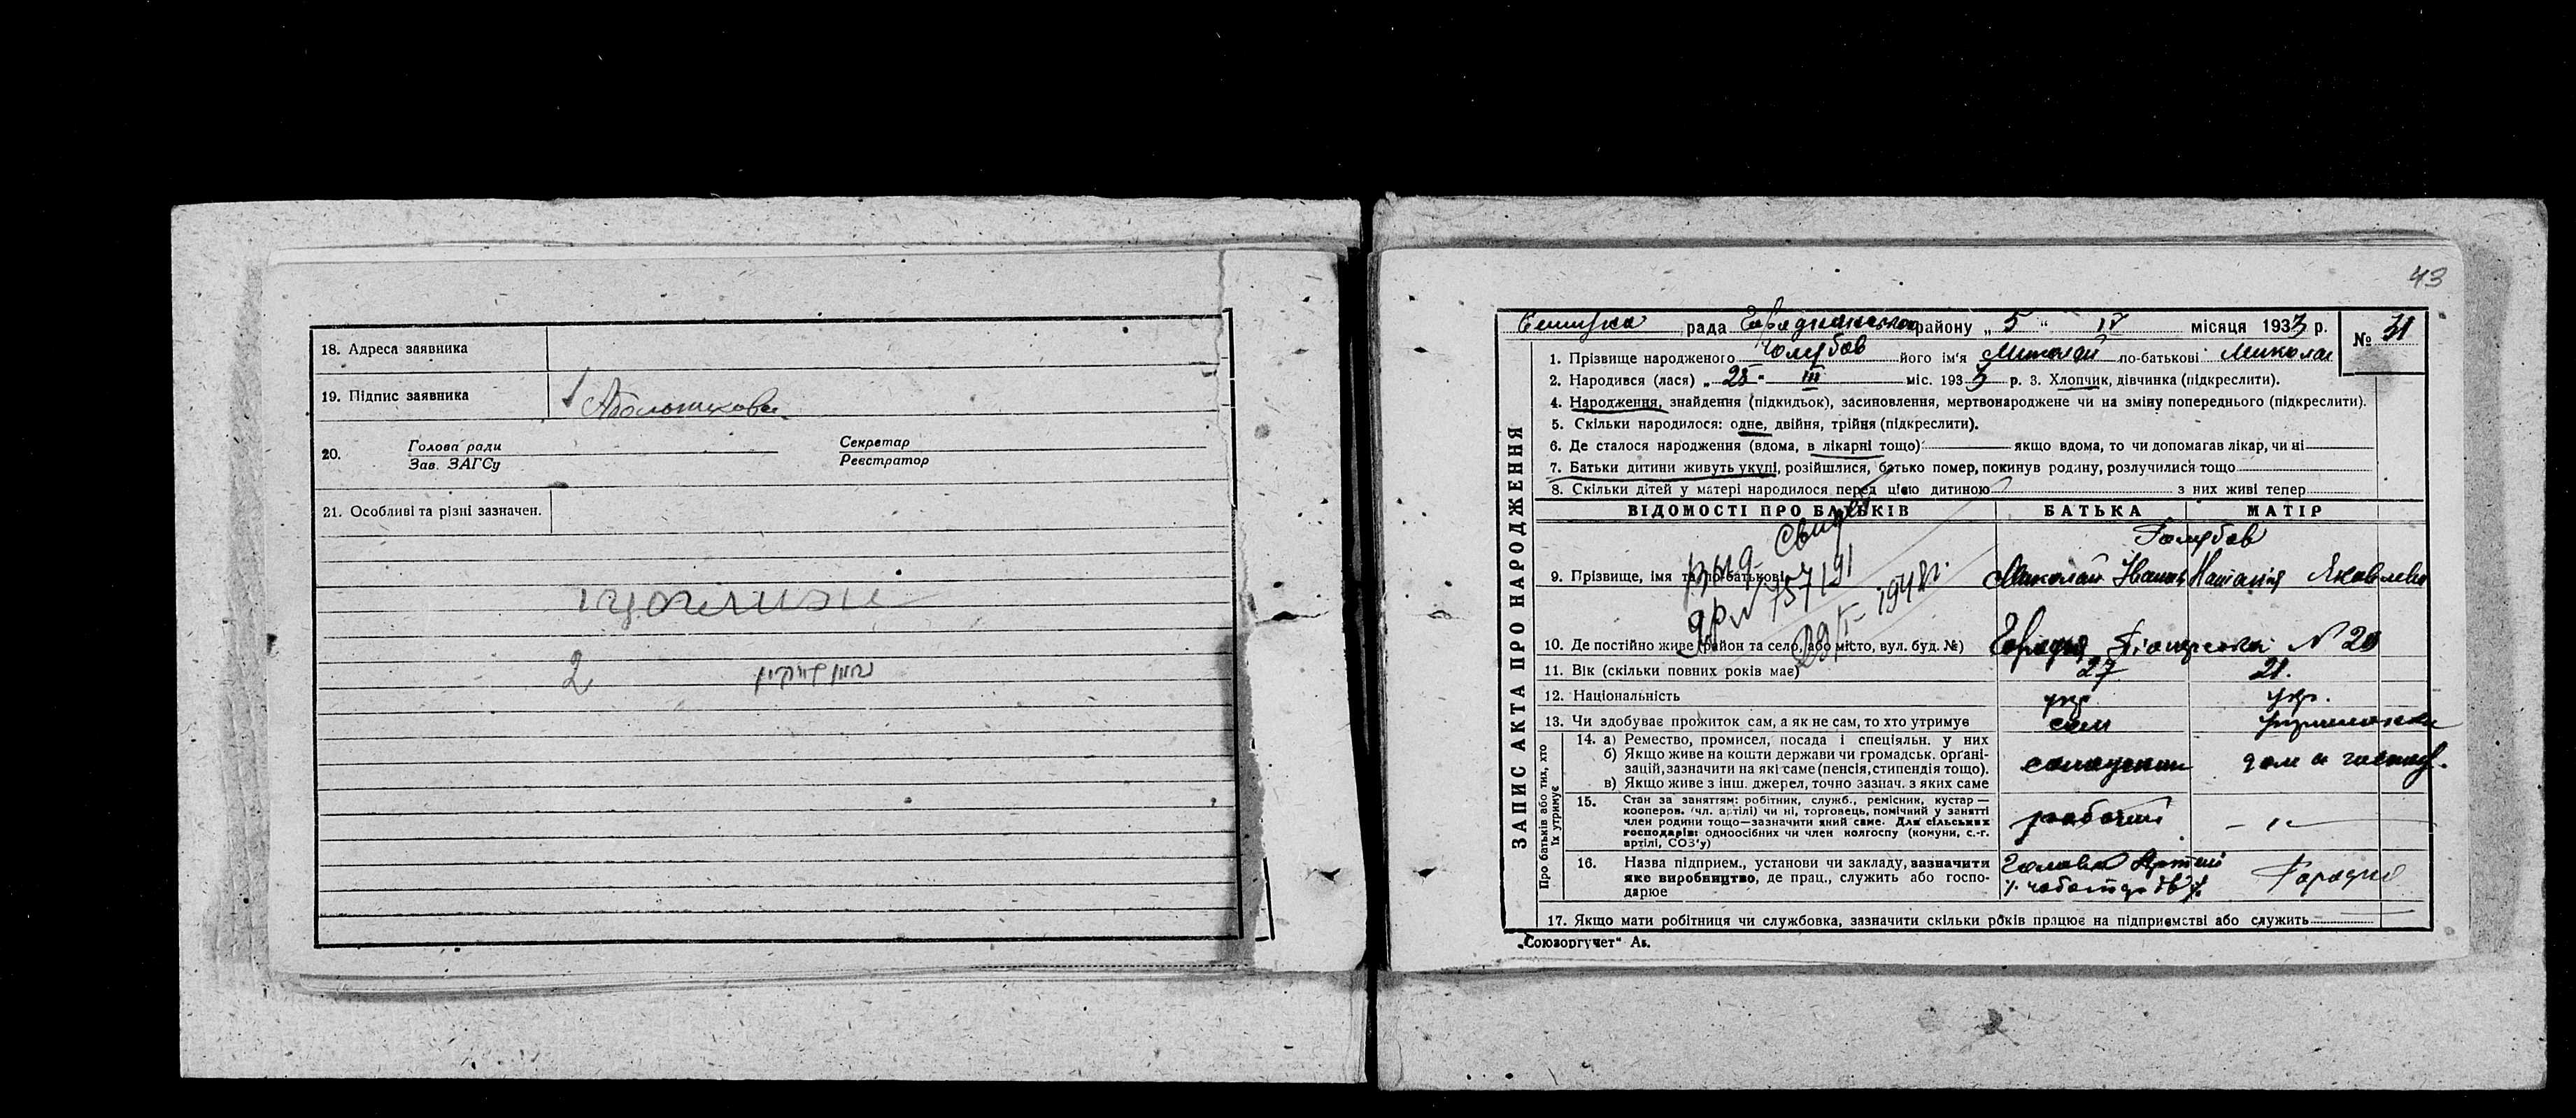 18. Адреса заявника
19. Підпис заявника
20. Голова ради Секретар
Зав. ЗАГСу Реєстратор
21. Особливі та різні зазначен.
2
43
рада району „5“ IV місяця 1933 р. № 31
1. Прізвище народженого Голубов його ім'я Миколай по-батькові Микола
2. Народився (лася) „25“ III міс. 1933 р. 3. Хлопчик, дівчинка (підкреслити).
4. Народження, знайдення (підкидьок), засиновлення, мертвонароджене чи на зміну попереднього (підкреслити).
5. Скільки народилося: одне, двійня, трійня (підкреслити).
6. Де сталося народження (вдома, в лікарні тощо) якщо вдома, то чи допомагав лікар, чи ні
7. Батьки дитини живуть укупі, розійшлися, батько помер, покинув родину, розлучилися тощо
8. Скільки дітей у матері народилося перед цією дитиною з них живі тепер
ЗАПИС АКТА ПРО НАРОДЖЕННЯ
ВІДОМОСТІ ПРО БАТЬКІВ БАТЬКА МАТІР
Голубов
9. Прізвище, імя та по-батькові Миколай Іванов Наталія Яковлевна
10. Де постійно живе (район та село, або місто, вул. буд. №) Городня N 20
11. Вік (скільки повних років має) 27 21.
12. Національність укр укр.
13. Чи здобуває прожиток сам, а як не сам, то хто утримує сам
Про батьків або тих, хто їх утримує
14. а) Ремество, промисел, посада і спеціяльн. у них
б) Якщо живе на кошти держави чи громадськ. організацій, зазначити на які саме (пенсія, стипендія тощо).
в) Якщо живе з інш. джерел, точно зазнач. з яких саме
15. Стан за заняттям: робітник, служб., ремісник, кустар—
кооперов. (чл. артілі) чи ні, торговець, помічний у занятті
член родини тощо—зазначити який саме. Для сільських
господарів: одноосібних чи член колгоспу (комуни, с.-г.
артілі, СОЗ'у)
рабочий – „ –
16. Назва підприєм., установи чи закладу, зазначити
яке виробництво, де прац., служить або господарює
Голова Артілі
Городня
17. Якщо мати робітниця чи службовка, зазначити скільки років працює на підприємстві або служить
„Союзоргучет“
Выд. свид.
1948г.